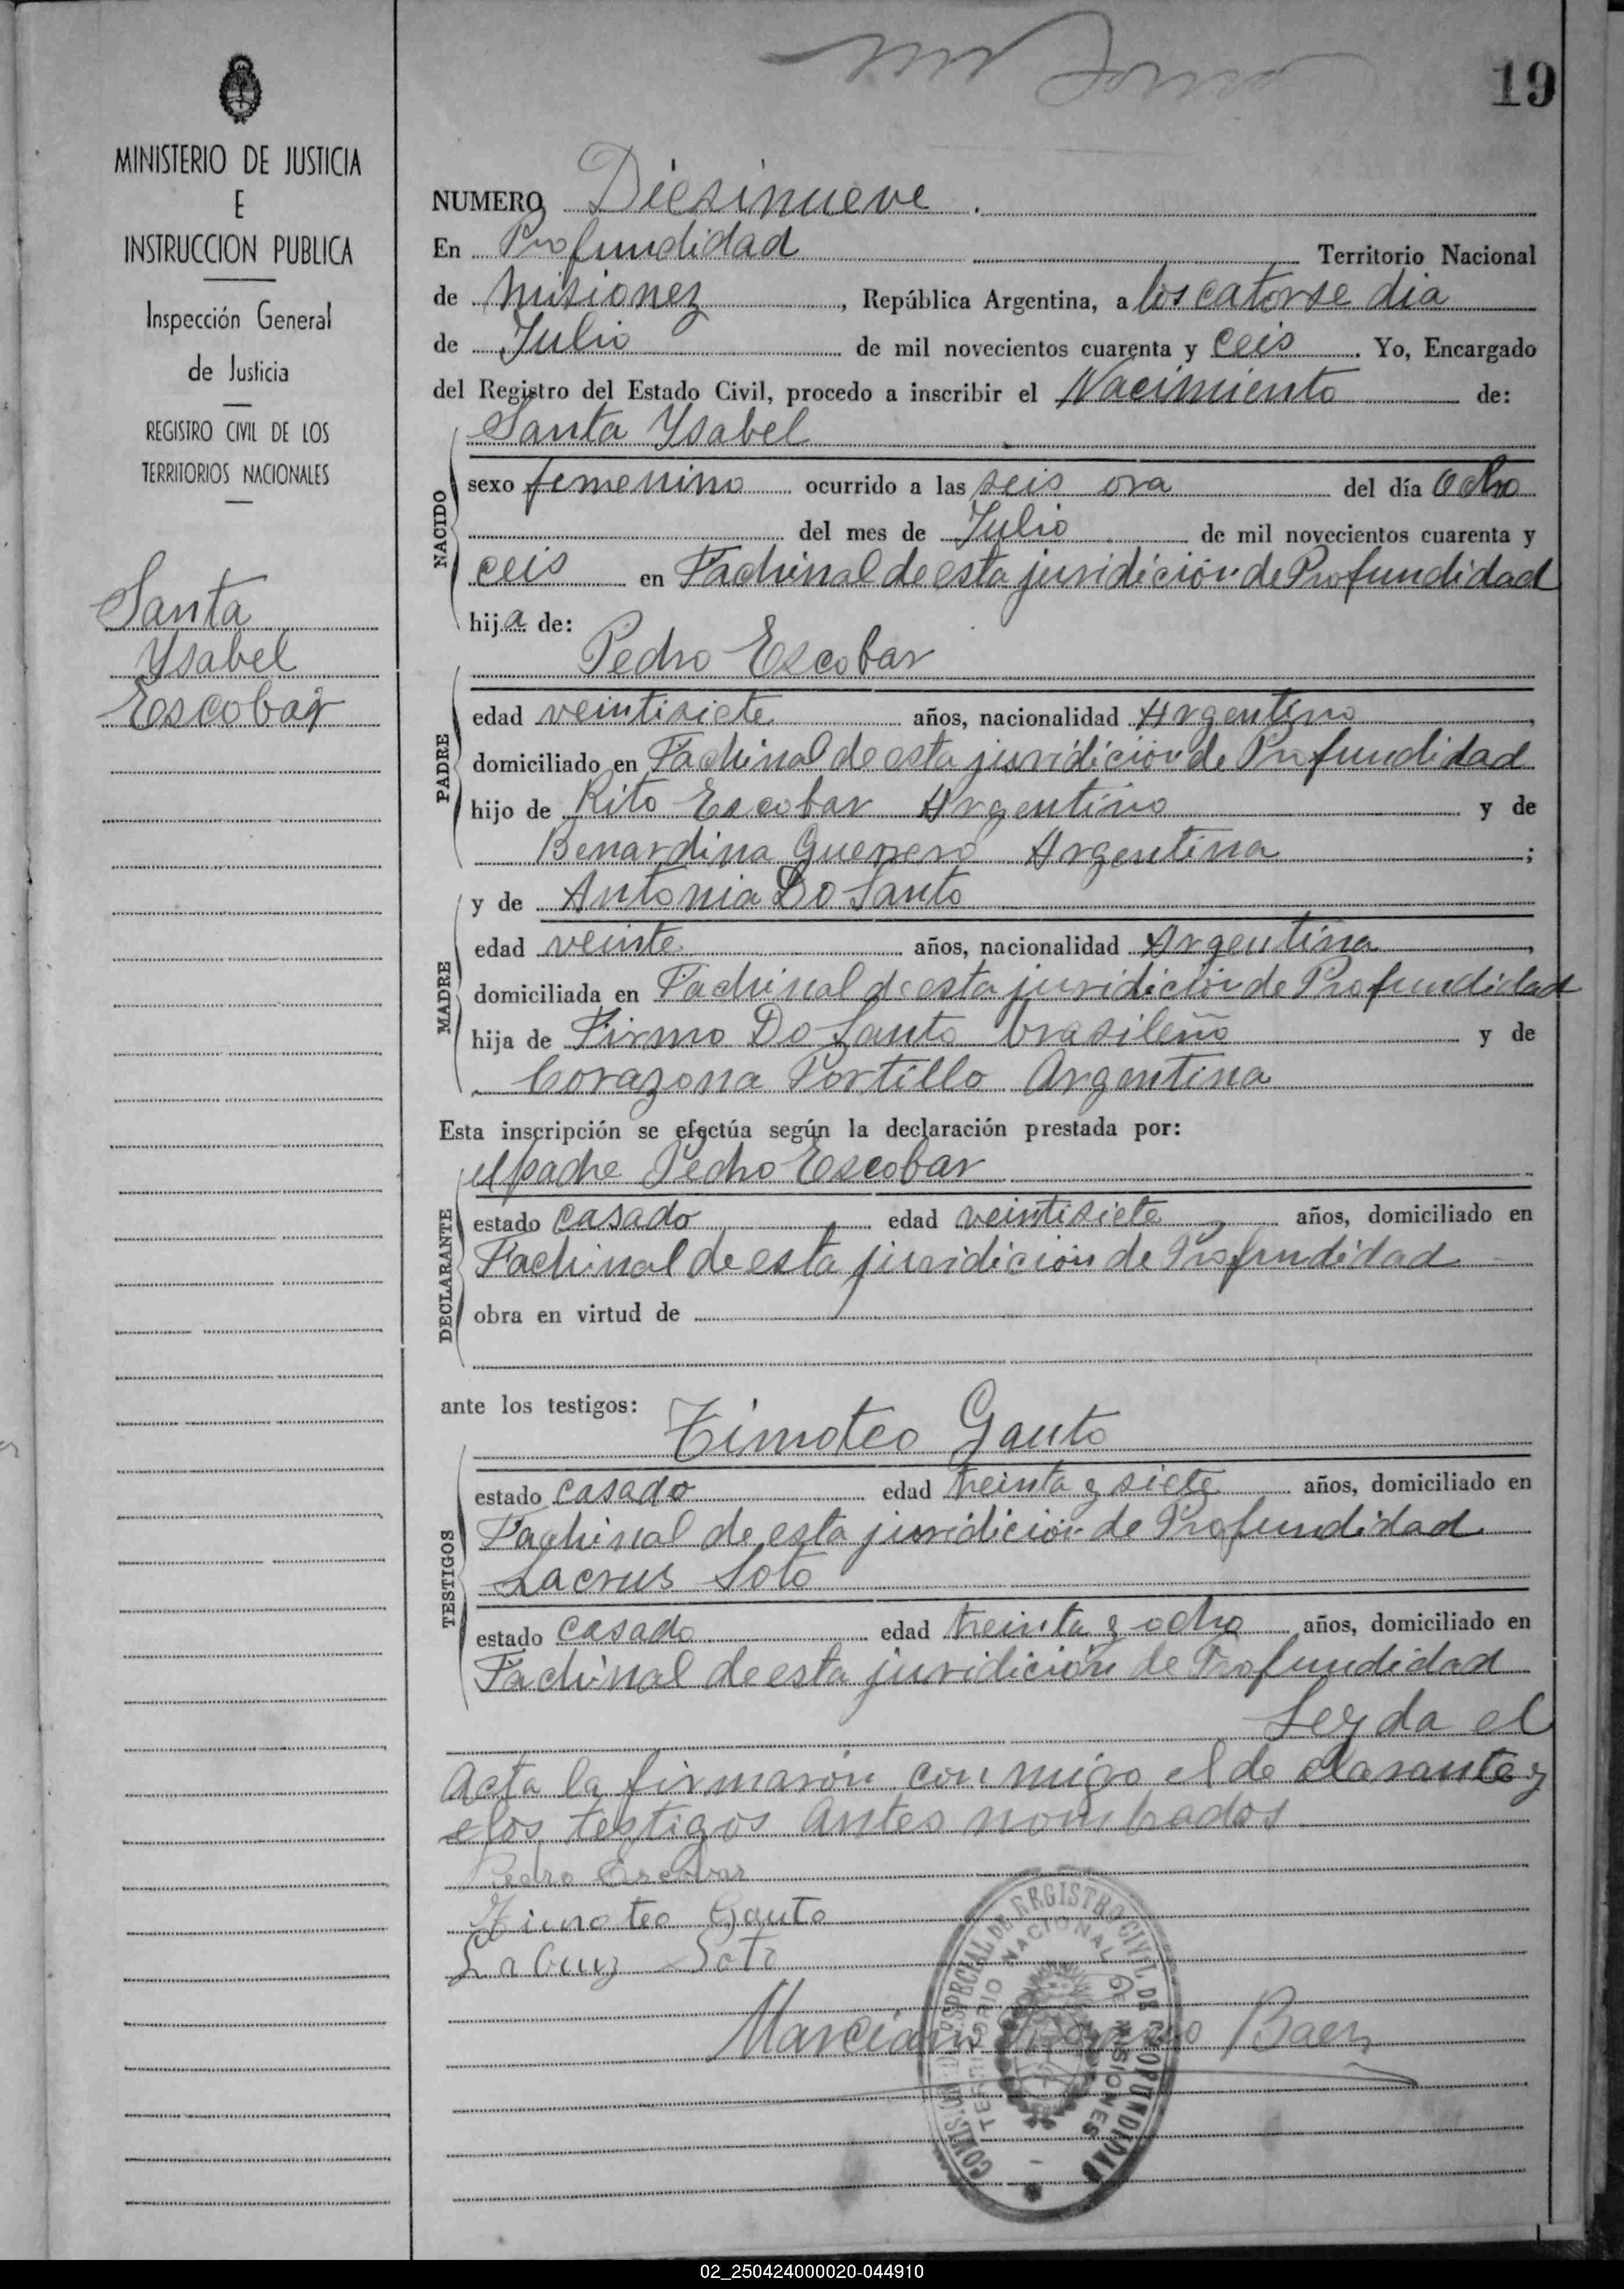 19
MINISTERIO DE JUSTICIA
E
INSTRUCCION PUBLICA
Inspección General
de Justicia
REGISTRO CIVIL DE LOS
TERRITORIOS NACIONALES
Santa
Ysabel
Escobar
NUMERO Diesinueve.
En Profundidad Territorio Nacional
de Misionez, República Argentina, a los catorse dia
de Julio de mil novecientos cuarenta y ceis. Yo, Encargado
del Registro del Estado Civil, procedo a inscribir el Nacimiento de:
Santa Ysabel
NACIDO
sexo femenino ocurrido a las seis ora del día ocho
del mes de Julio de mil novecientos cuarenta y
ceis en Fachinal de esta juridición de Profundidad
hija de:
Pedro Escobar
PADRE
edad veintisiete años, nacionalidad Argentino,
domiciliado en Fachinal de esta juridición de Profundidad
hijo de Rito Escobar Argentino y de
Benardina Guerrero Argentina;
y de Antonia Do Santo
MADRE
edad veinte años, nacionalidad Argentina,
domiciliada en Fachinal de esta juridición de Profundidad
hija de Firmo Do Santo brasileño y de
Corazona Portillo Argentina
Esta inscripción se efectúa según la declaración prestada por:
el padre Pedro Escobar
DECLARANTE
estado casado edad veintisiete años, domiciliado en
Fachinal de esta juridición de Profundidad
obra en virtud de
ante los testigos:
Timoteo Gauto
TESTIGOS
estado casado edad treinta y siete años, domiciliado en
Fachinal de esta juridición de Profundidad
Lacrus Soto
estado casado edad treinta y ocho años, domiciliado en
Fachinal de esta juridición de Profundidad
Leyda el
Acta la firmarón con migo el de clarante y
los testigos antes nombrados
Pedro Escobar
Timoteo Gauto
La Cruz Soto
Marciano Baez
COMISION ESPECIAL DE REGISTRO CIVIL DE PROFUNDIDAD
TERRITORIO NACIONAL DE MISIONES
02_250424000020-044910